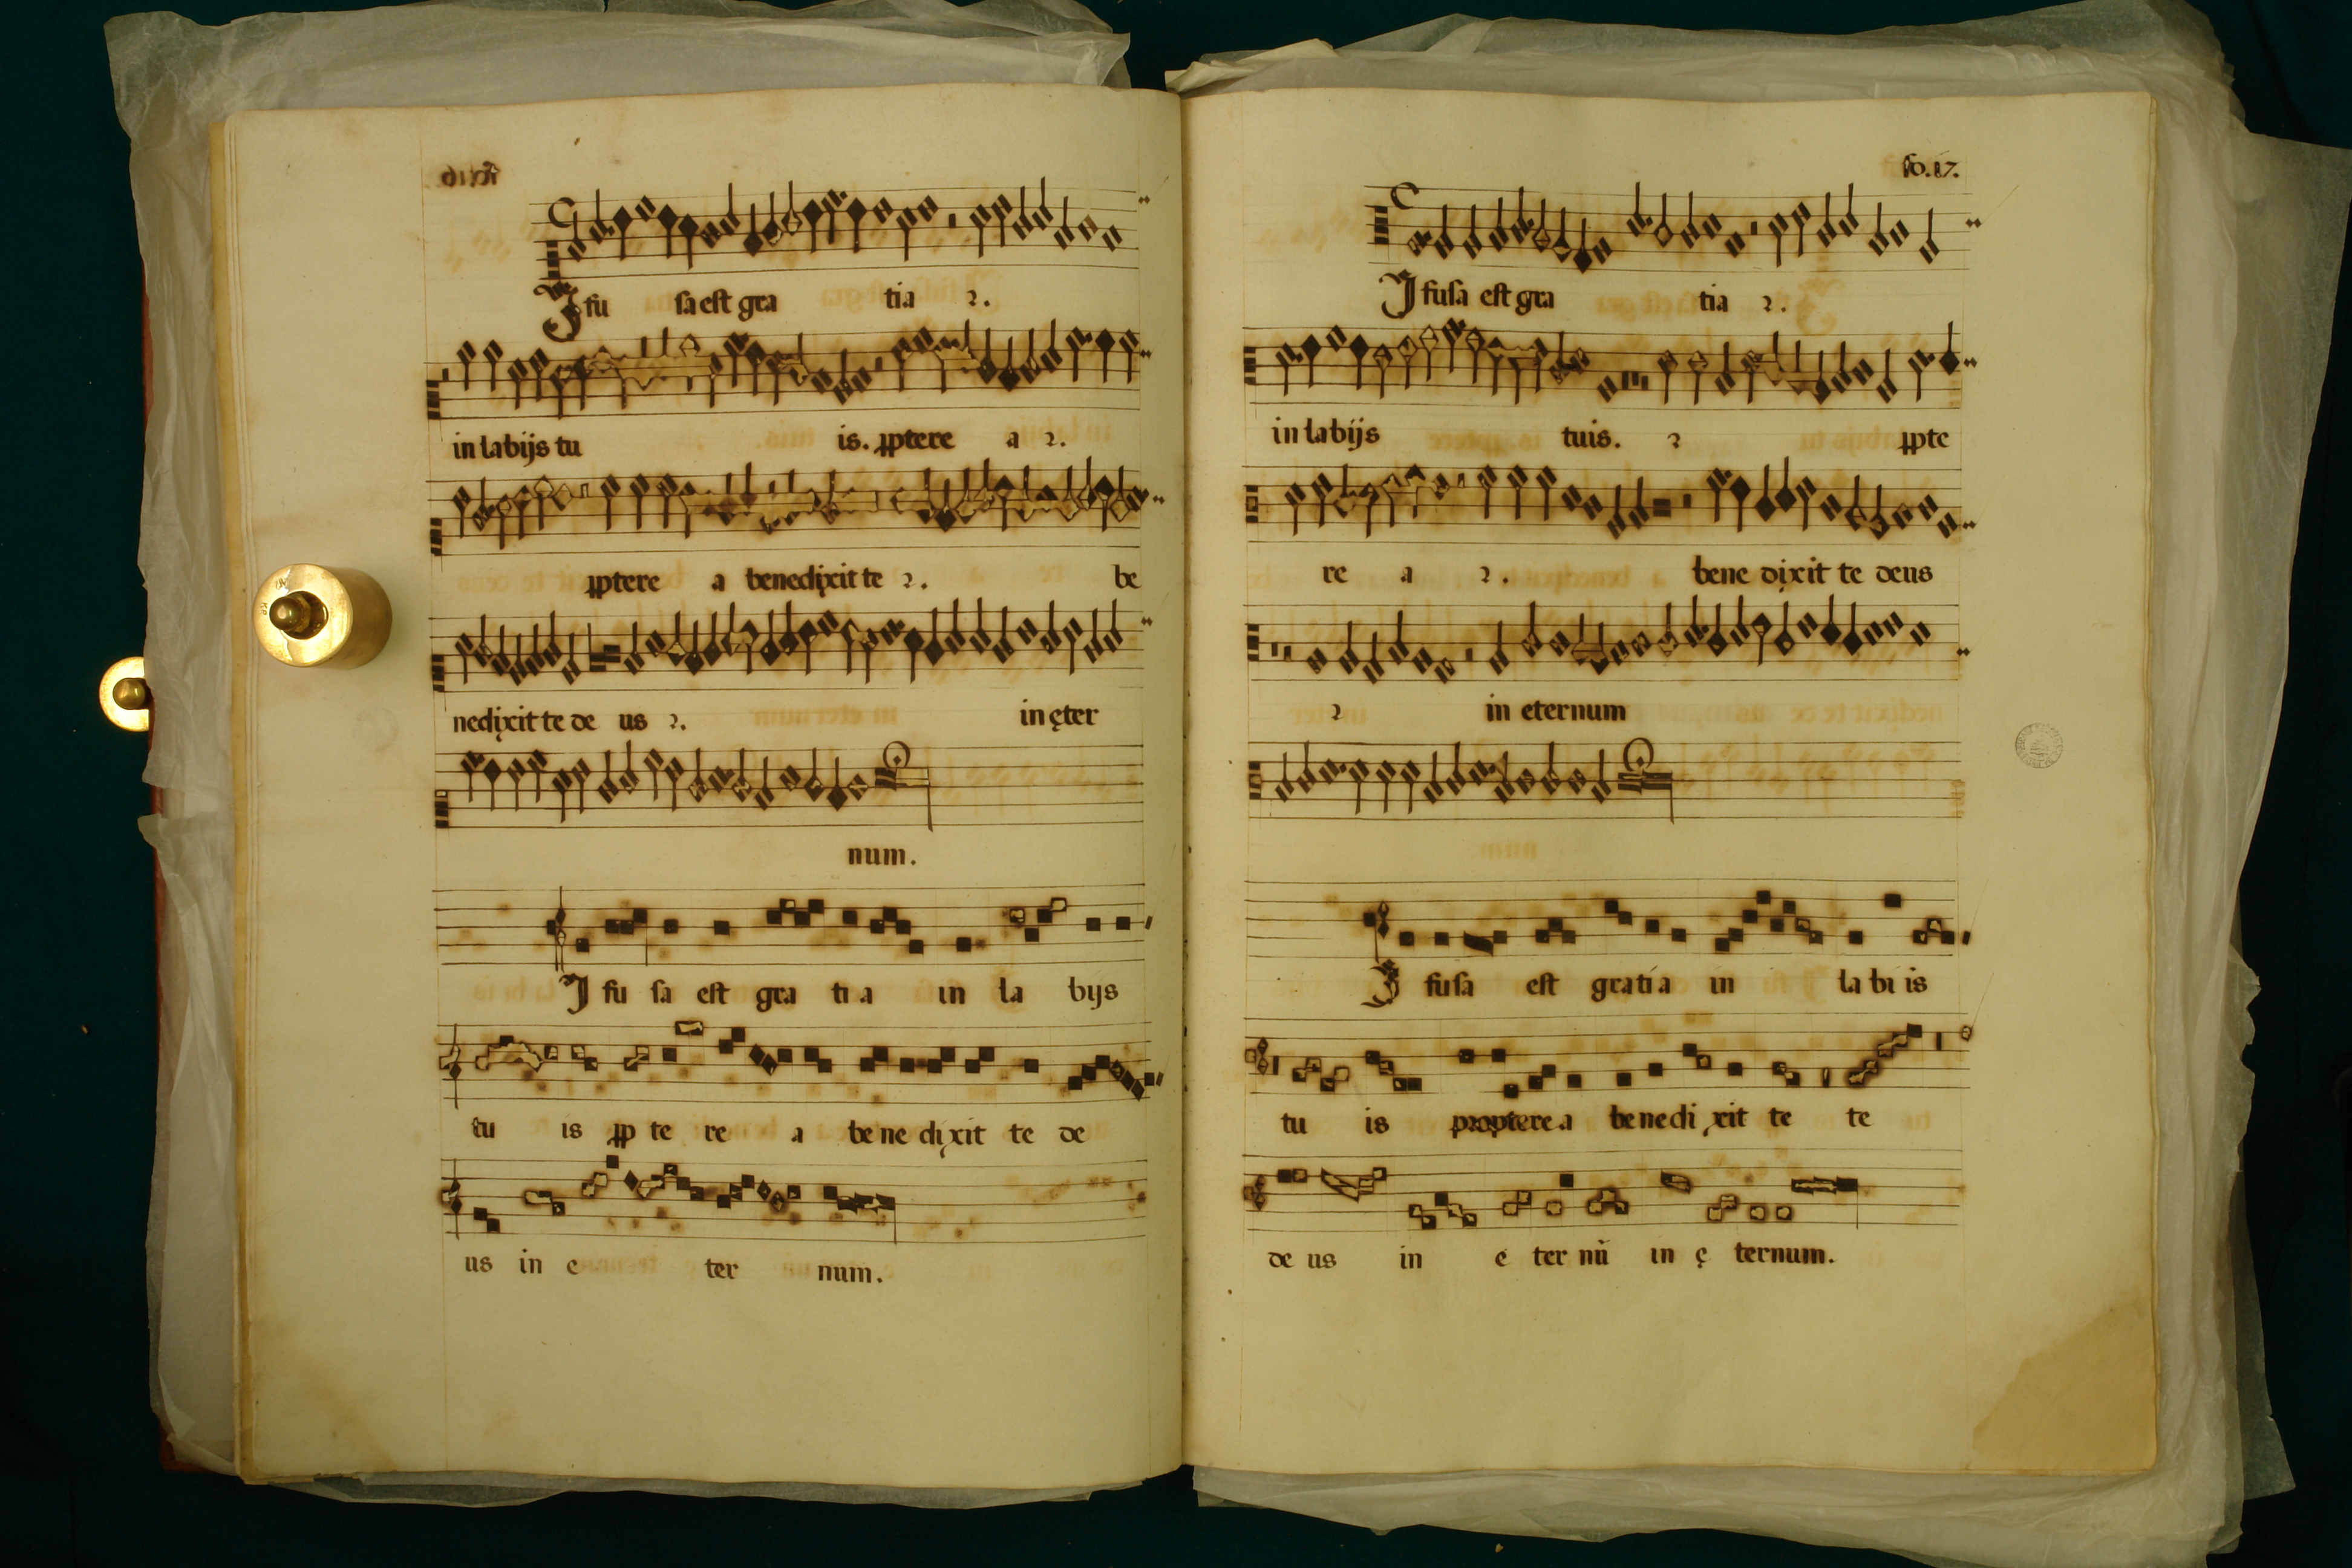 Ifu sa est gra tia 2.
in labijs tu is. ꝓptere a 2.
ꝓptere a benedixit te 2. be
nedixit te de us 2. in ęter
num.
I fu sa est gra ti a in la bijs
tu is ꝓp te re a be ne di xit te de
us in e ter num.
fo.17.
I fusa est gra tia 2.
in labijs tuis. 2 ꝓpte
re a 2. bene dixit te deus
2 in eternum
I fusa est gratia in la bi is
tu is propterea benedi xit te te
de us in e ter nũ in ę ternum.